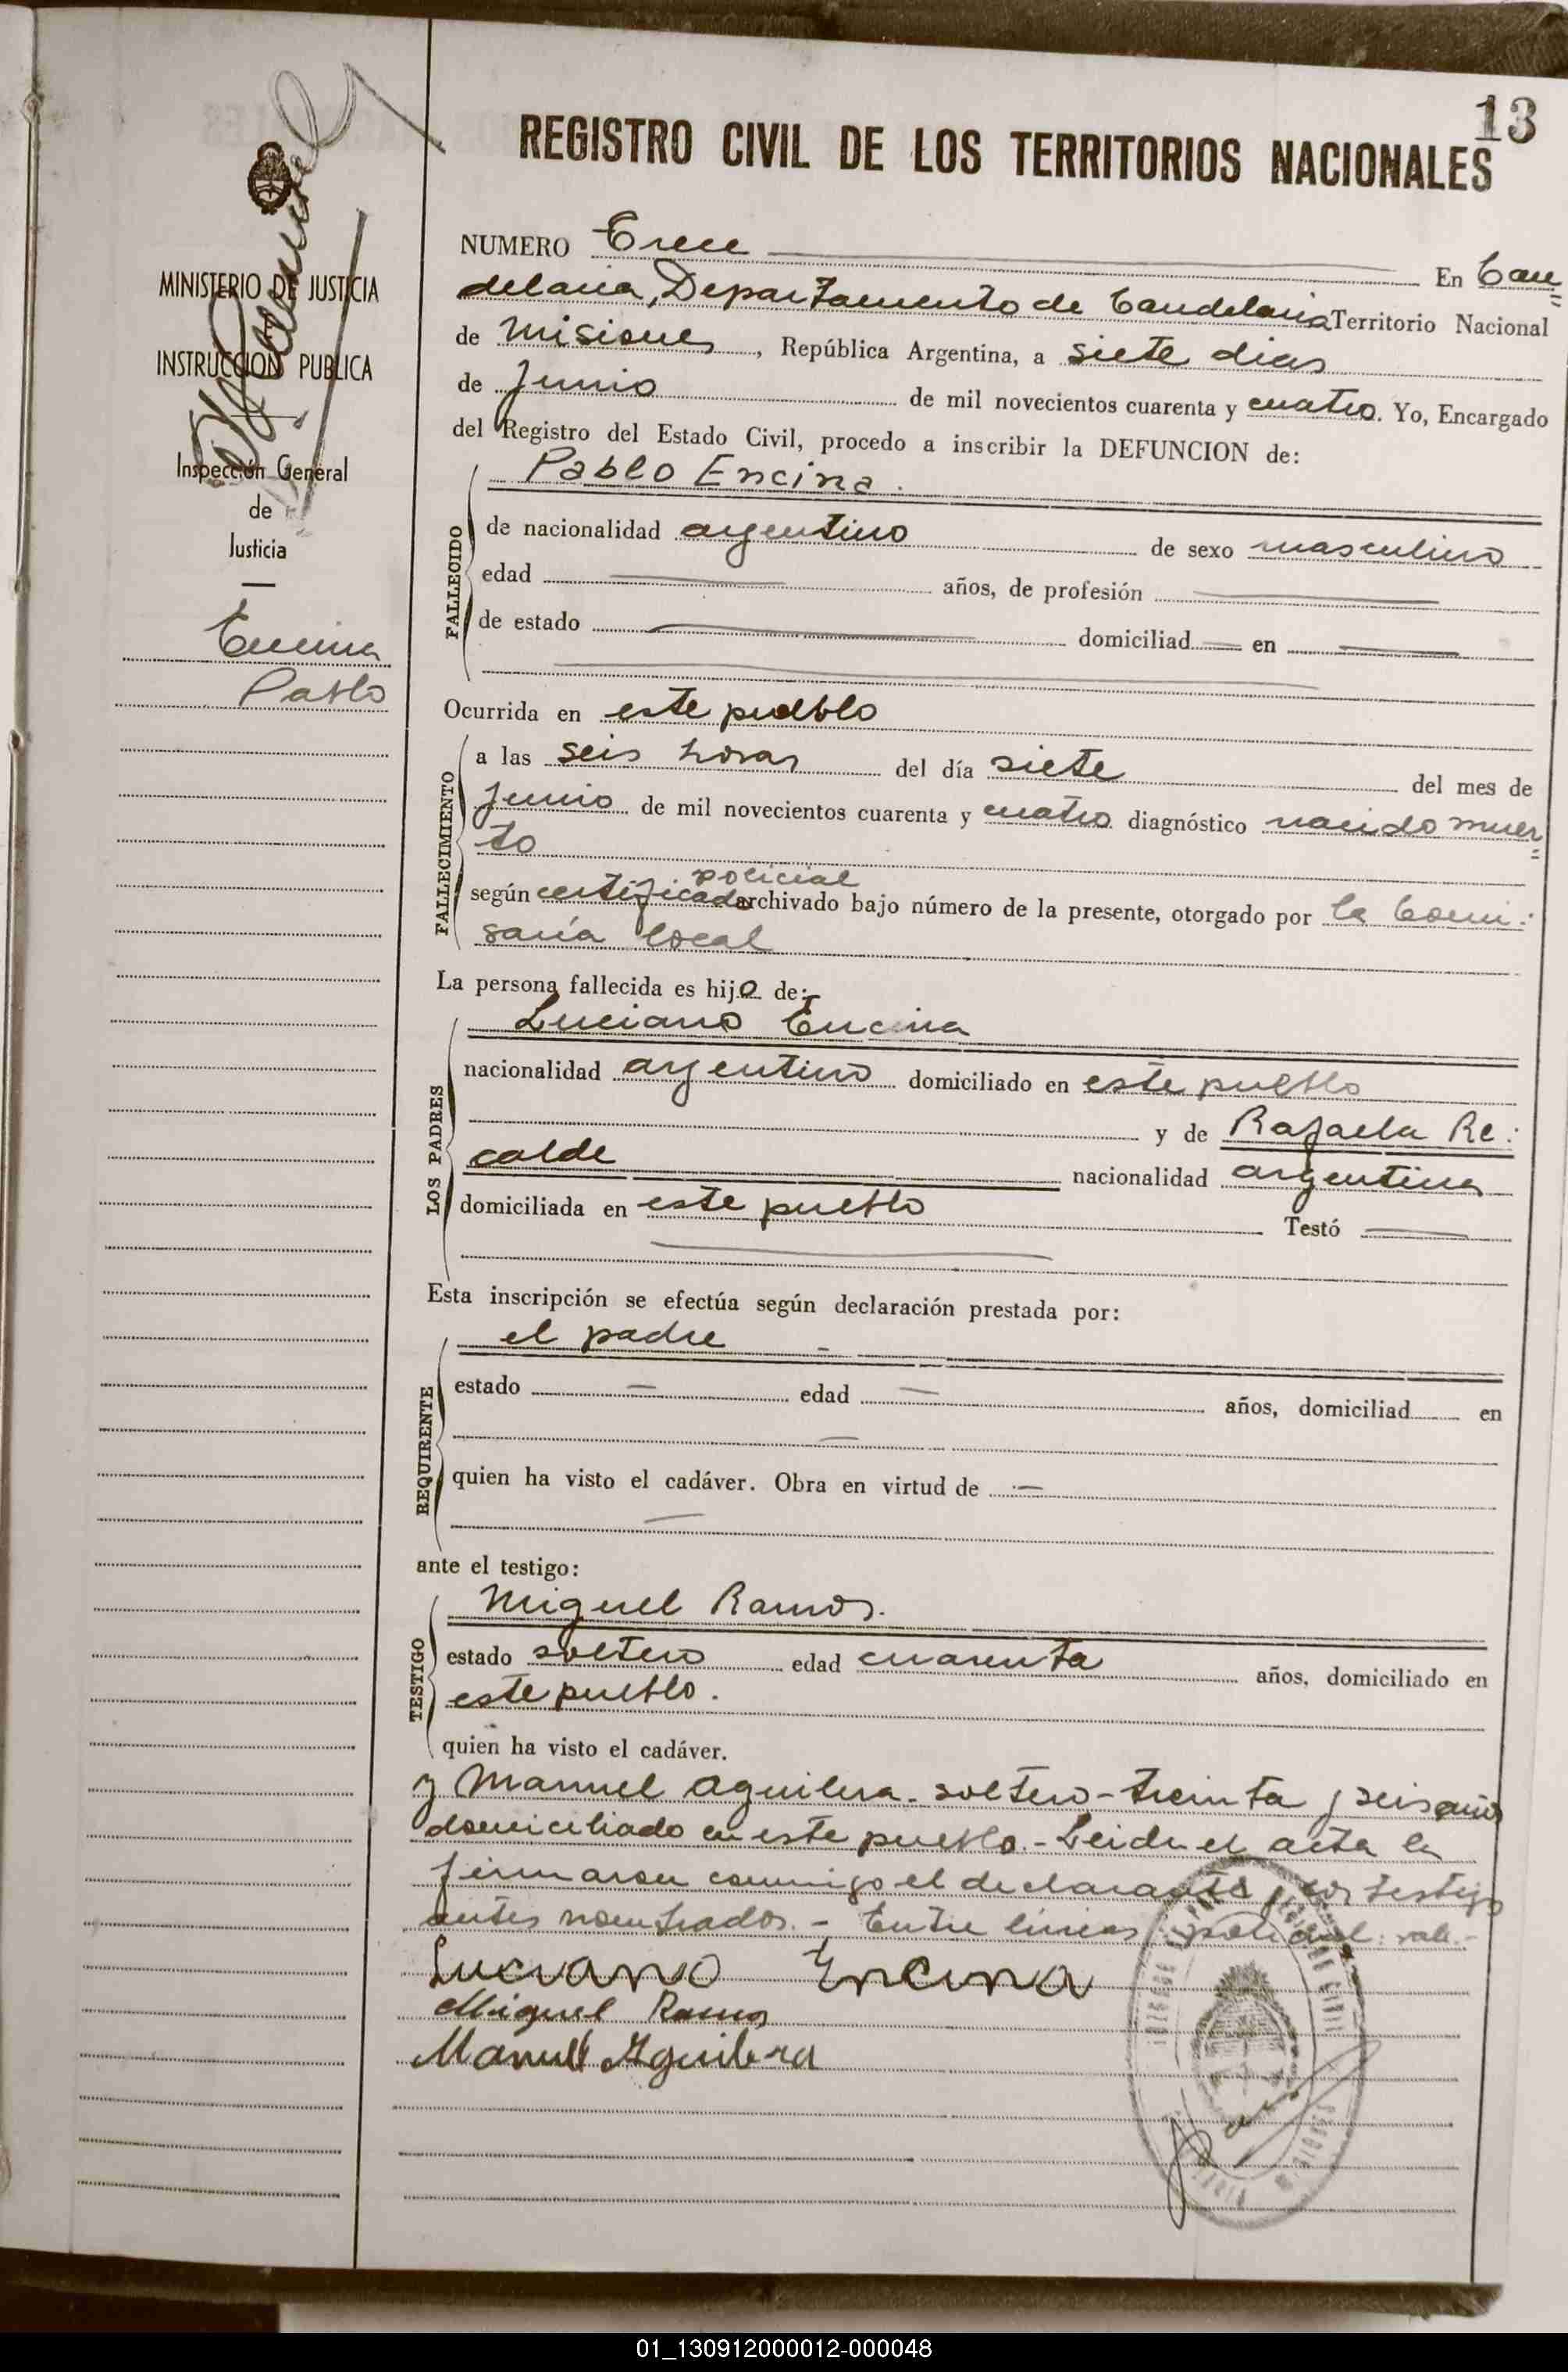 13
REGISTRO CIVIL DE LOS TERRITORIOS NACIONALES
MINISTERIO DE JUSTICIA
INSTRUCCION PUBLICA
Inspección General
de
Justicia
Encina
Pablo
NUMERO Trece En Can=
delaria, Departamento de Candelaria Territorio Nacional
de Misiones, República Argentina, a siete dias
de Junio de mil novecientos cuarenta y cuatro. Yo, Encargado
del Registro del Estado Civil, procedo a inscribir la DEFUNCION de:
Pablo Encina.
FALLECIDO
de nacionalidad argentino de sexo masculino
edad años, de profesión
de estado domiciliad en
Ocurrida en este pueblo
FALLECIMIENTO
a las seis horas del día siete del mes de
Junio de mil novecientos cuarenta y cuatro diagnóstico nacido muer=
to
policial
según certificado archivado bajo número de la presente, otorgado por la Comi:
saría local
La persona fallecida es hijo de:
LOS PADRES
Luciano Encina
nacionalidad argentino domiciliado en este pueblo
y de Rafaela Re:
calde nacionalidad argentina
domiciliada en este pueblo Testó
Esta inscripción se efectúa según declaración prestada por:
REQUIRENTE
el padre
estado edad años, domiciliad en
quien ha visto el cadáver. Obra en virtud de
ante el testigo:
TESTIGO
Miguel Ramos.
estado soltero edad cuarenta años, domiciliado en
este pueblo.
quien ha visto el cadáver.
y Manuel Aguilera. soltero - treinta y seis años
domiciliado en este pueblo. - Leida el acta la
firmaron conmigo el declarante y los testigos
antes nombrados. - Entre lineas: policial: vale. -
Luciano Encina
Miguel Ramos
Manuel Aguilera
01_130912000012-000048